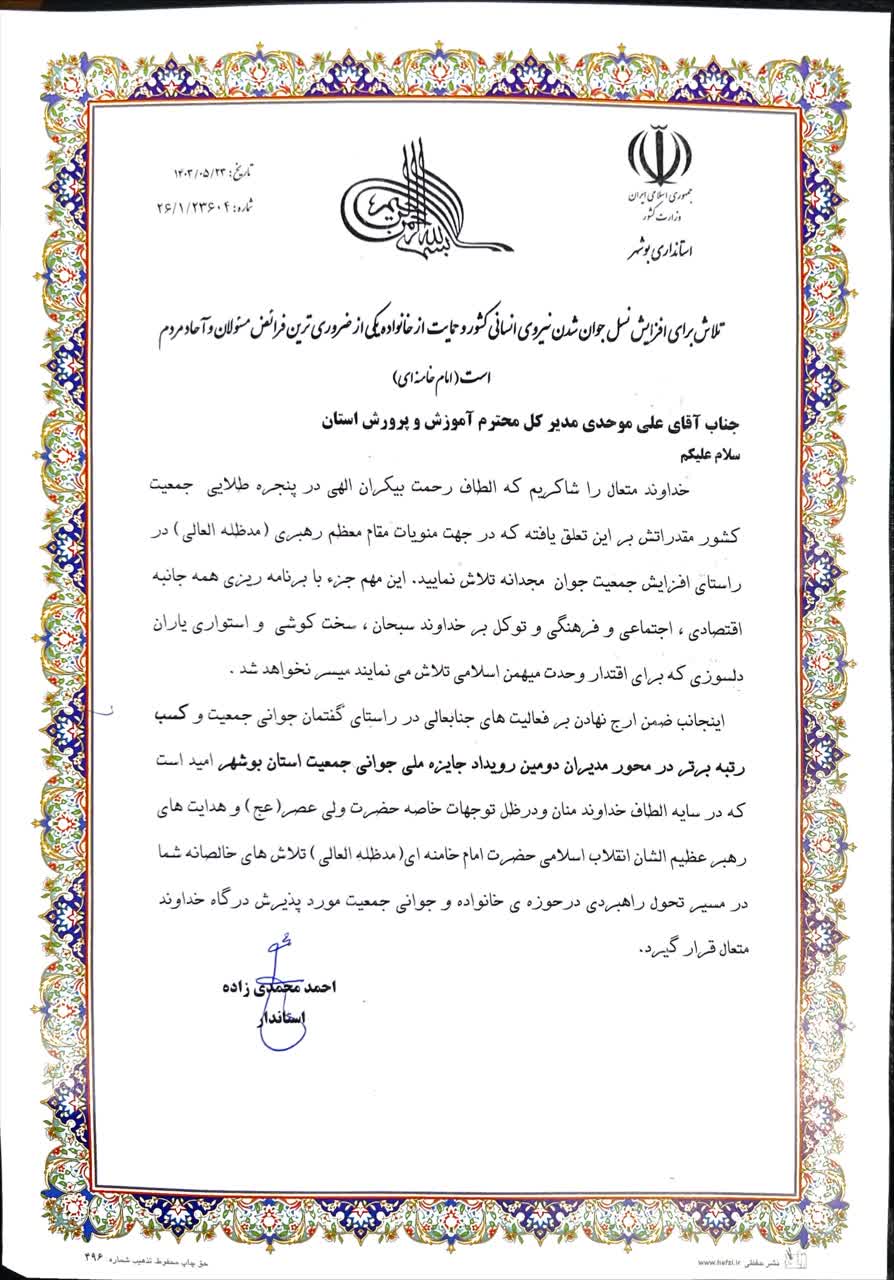 جمهوری اسلامی ایران
وزارت کشور
استانداری بوشهر
بسم الله الرحمن الرحیم
تاریخ: ۱۴۰۳/۰۵/۲۳
شماره: ۲۶/۱/۲۳۶۰۴
تلاش برای افزایش نسل جوان شدن نیروی انسانی کشور و حمایت از خانواده یکی از ضروری ترین فرائض مسئولان و آحاد مردم
است (امام خامنه ای)
جناب آقای علی موحدی مدیر کل محترم آموزش و پرورش استان
سلام علیکم
خداوند متعال را شاکریم که الطاف رحمت بیکران الهی در پنجره طلایی جمعیت
کشور مقدراتش بر این تعلق یافته که در جهت منویات مقام معظم رهبری (مدظله العالی) در
راستای افزایش جمعیت جوان مجدانه تلاش نمایید. این مهم جزء با برنامه ریزی همه جانبه
اقتصادی ، اجتماعی و فرهنگی و توکل بر خداوند سبحان ، سخت کوشی و استواری یاران
دلسوزی که برای اقتدار وحدت میهمن اسلامی تلاش می نمایند میسر نخواهد شد .
اینجانب ضمن ارج نهادن بر فعالیت های جنابعالی در راستای گفتمان جوانی جمعیت و کسب
رتبه برتر در محور مدیران دومین رویداد جایزه ملی جوانی جمعیت استان بوشهر امید است
که در سایه الطاف خداوند منان ودرظل توجهات خاصه حضرت ولی عصر(عج) و هدایت های
رهبر عظیم الشان انقلاب اسلامی حضرت امام خامنه ای(مدظله العالی) تلاش های خالصانه شما
در مسیر تحول راهبردی درحوزه ی خانواده و جوانی جمعیت مورد پذیرش درگاه خداوند
متعال قرار گیرد.
احمد محمدی زاده
استاندار
نشر حفظی www.hefzi.ir
حق چاپ محفوظ تذهیب شماره ۴۹۶